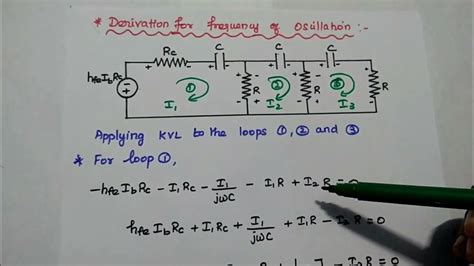 * Derivation for frequency of Oscillation :-
Rc C C C
+ - + - + - + -
hfe Ib Rc
① ② ③
R R R
I1 I2 I3
Applying KVL to the loops ①, ② and ③
* For loop ①,
-hfe Ib Rc - I1 Rc - I1/jωC - I1R + I2 R = 0
hfe Ib Rc + I1 Rc + I1/jωC + I1R - I2R = 0